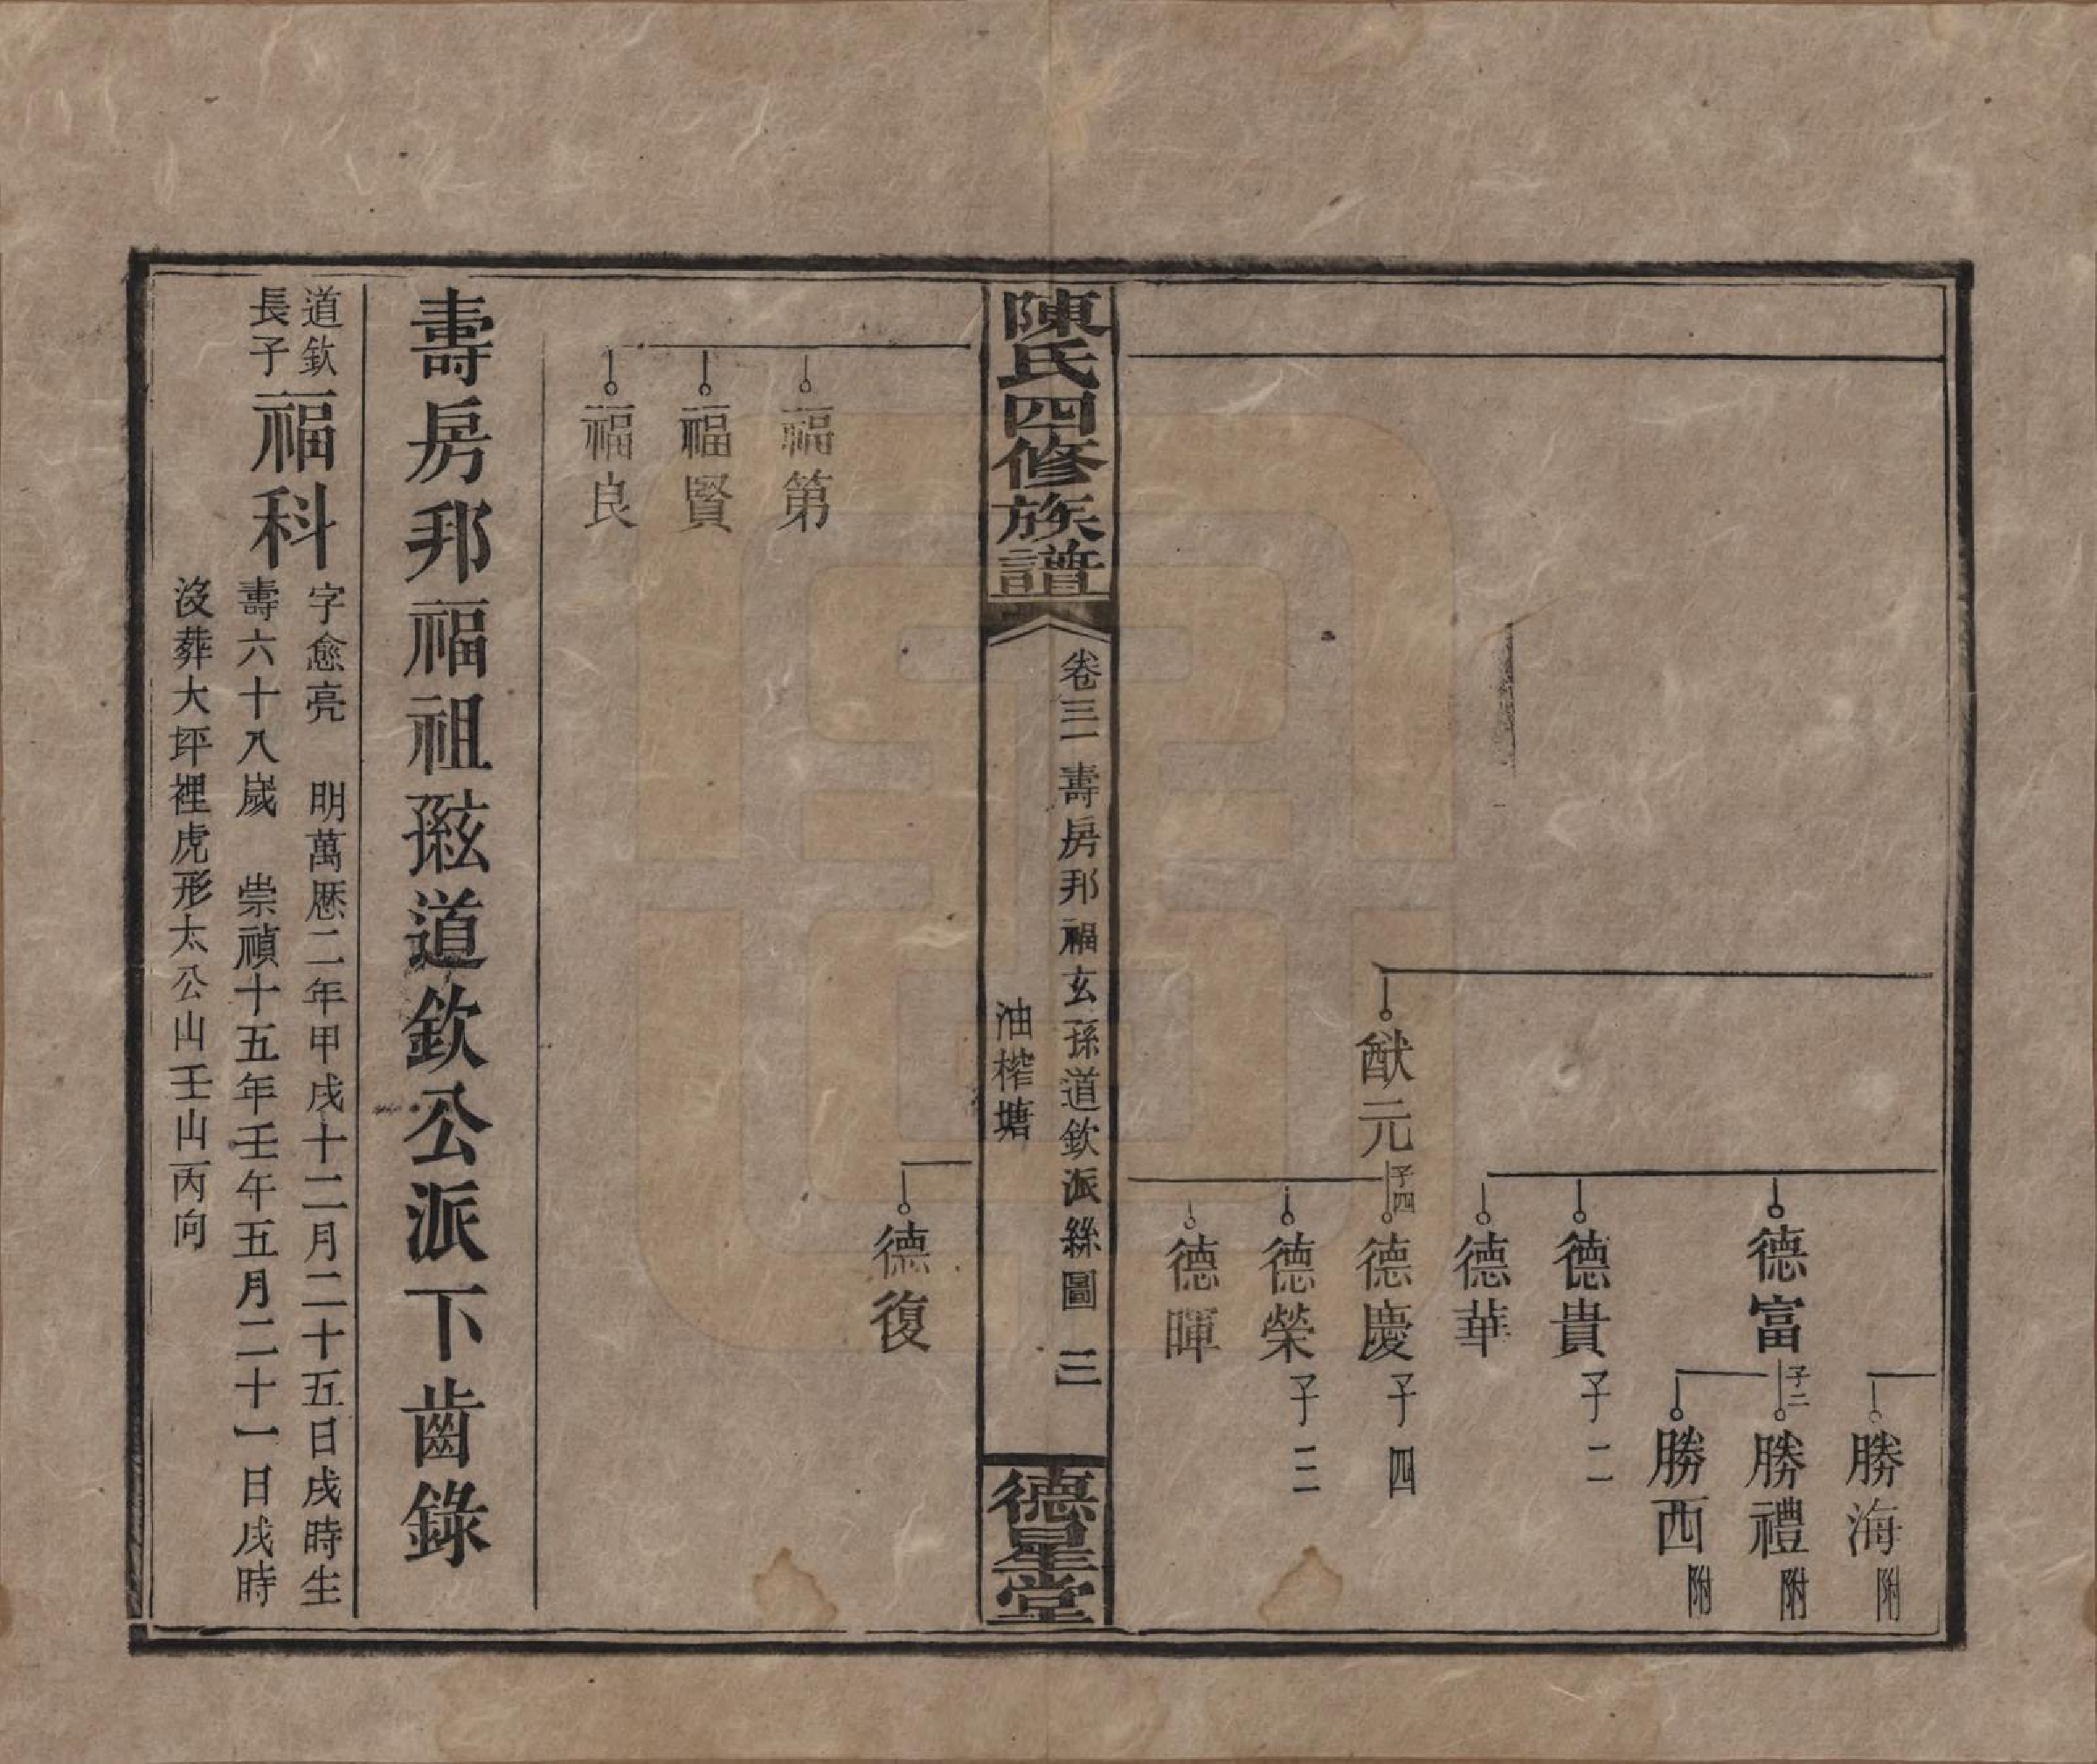 勝海附
德富子二
勝禮附
勝西附
德貴子二
德華
猷元子四
德慶子四
德榮子三
德暉
陳氏四修族譜
卷三一壽房邦福玄孫道欽派絲圖 三
油榨塘
德星堂
德復
福第
福賢
福良
壽房邦福祖玄孫道欽公派下齒錄
道欽長子福科
字愈亮 明萬厯二年甲戌十二月二十五日戌時生
壽六十八歲 崇禎十五年壬午五月二十一日戌時
沒葬大坪裡虎形太公山壬山丙向